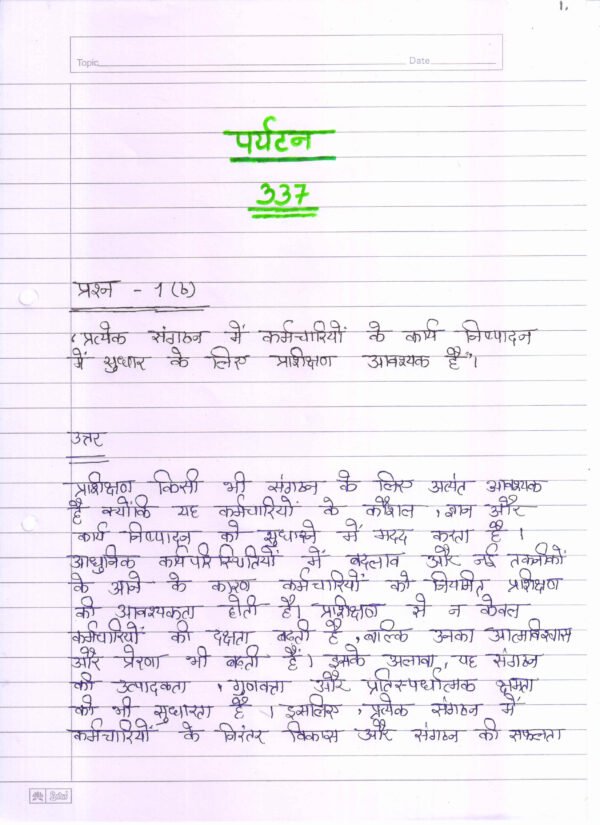 1.
Topic Date
पर्यटन
337
प्रश्न - 1 (b)
"प्रत्येक संगठन में कर्मचारियों के कार्य निष्पादन
में सुधार के लिए प्रशिक्षण आवश्यक है"।
उत्तर
प्रशिक्षण किसी भी संगठन के लिए अत्यंत आवश्यक
है क्योंकि यह कर्मचारियों के कौशल , ज्ञान और
कार्य निष्पादन को सुधारने में मदद करता है ।
आधुनिक कार्य परिस्थितियों में बदलाव और नई तकनीकों
के आने के कारण कर्मचारियों को नियमित प्रशिक्षण
की आवश्यकता होती है। प्रशिक्षण से न केवल
कर्मचारियों की दक्षता बढ़ती है , बल्कि उनका आत्मविश्वास
और प्रेरणा भी बढ़ती है। इसके अलावा , यह संगठन
की उत्पादकता , गुणवत्ता और प्रतिस्पर्धात्मक क्षमता
को भी सुधारता है । इसलिए , प्रत्येक संगठन में
कर्मचारियों के निरंतर विकास और संगठन की सफलता